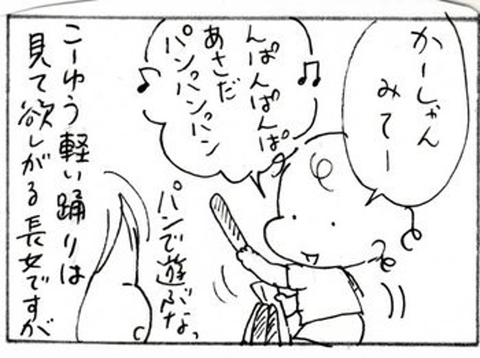 かーしゃん
みてー
んぱんぱんぱ
あさだ
パンパンパン
パンで遊ぶなっ
こーゆう軽い踊りは
見て欲しがる長女ですが